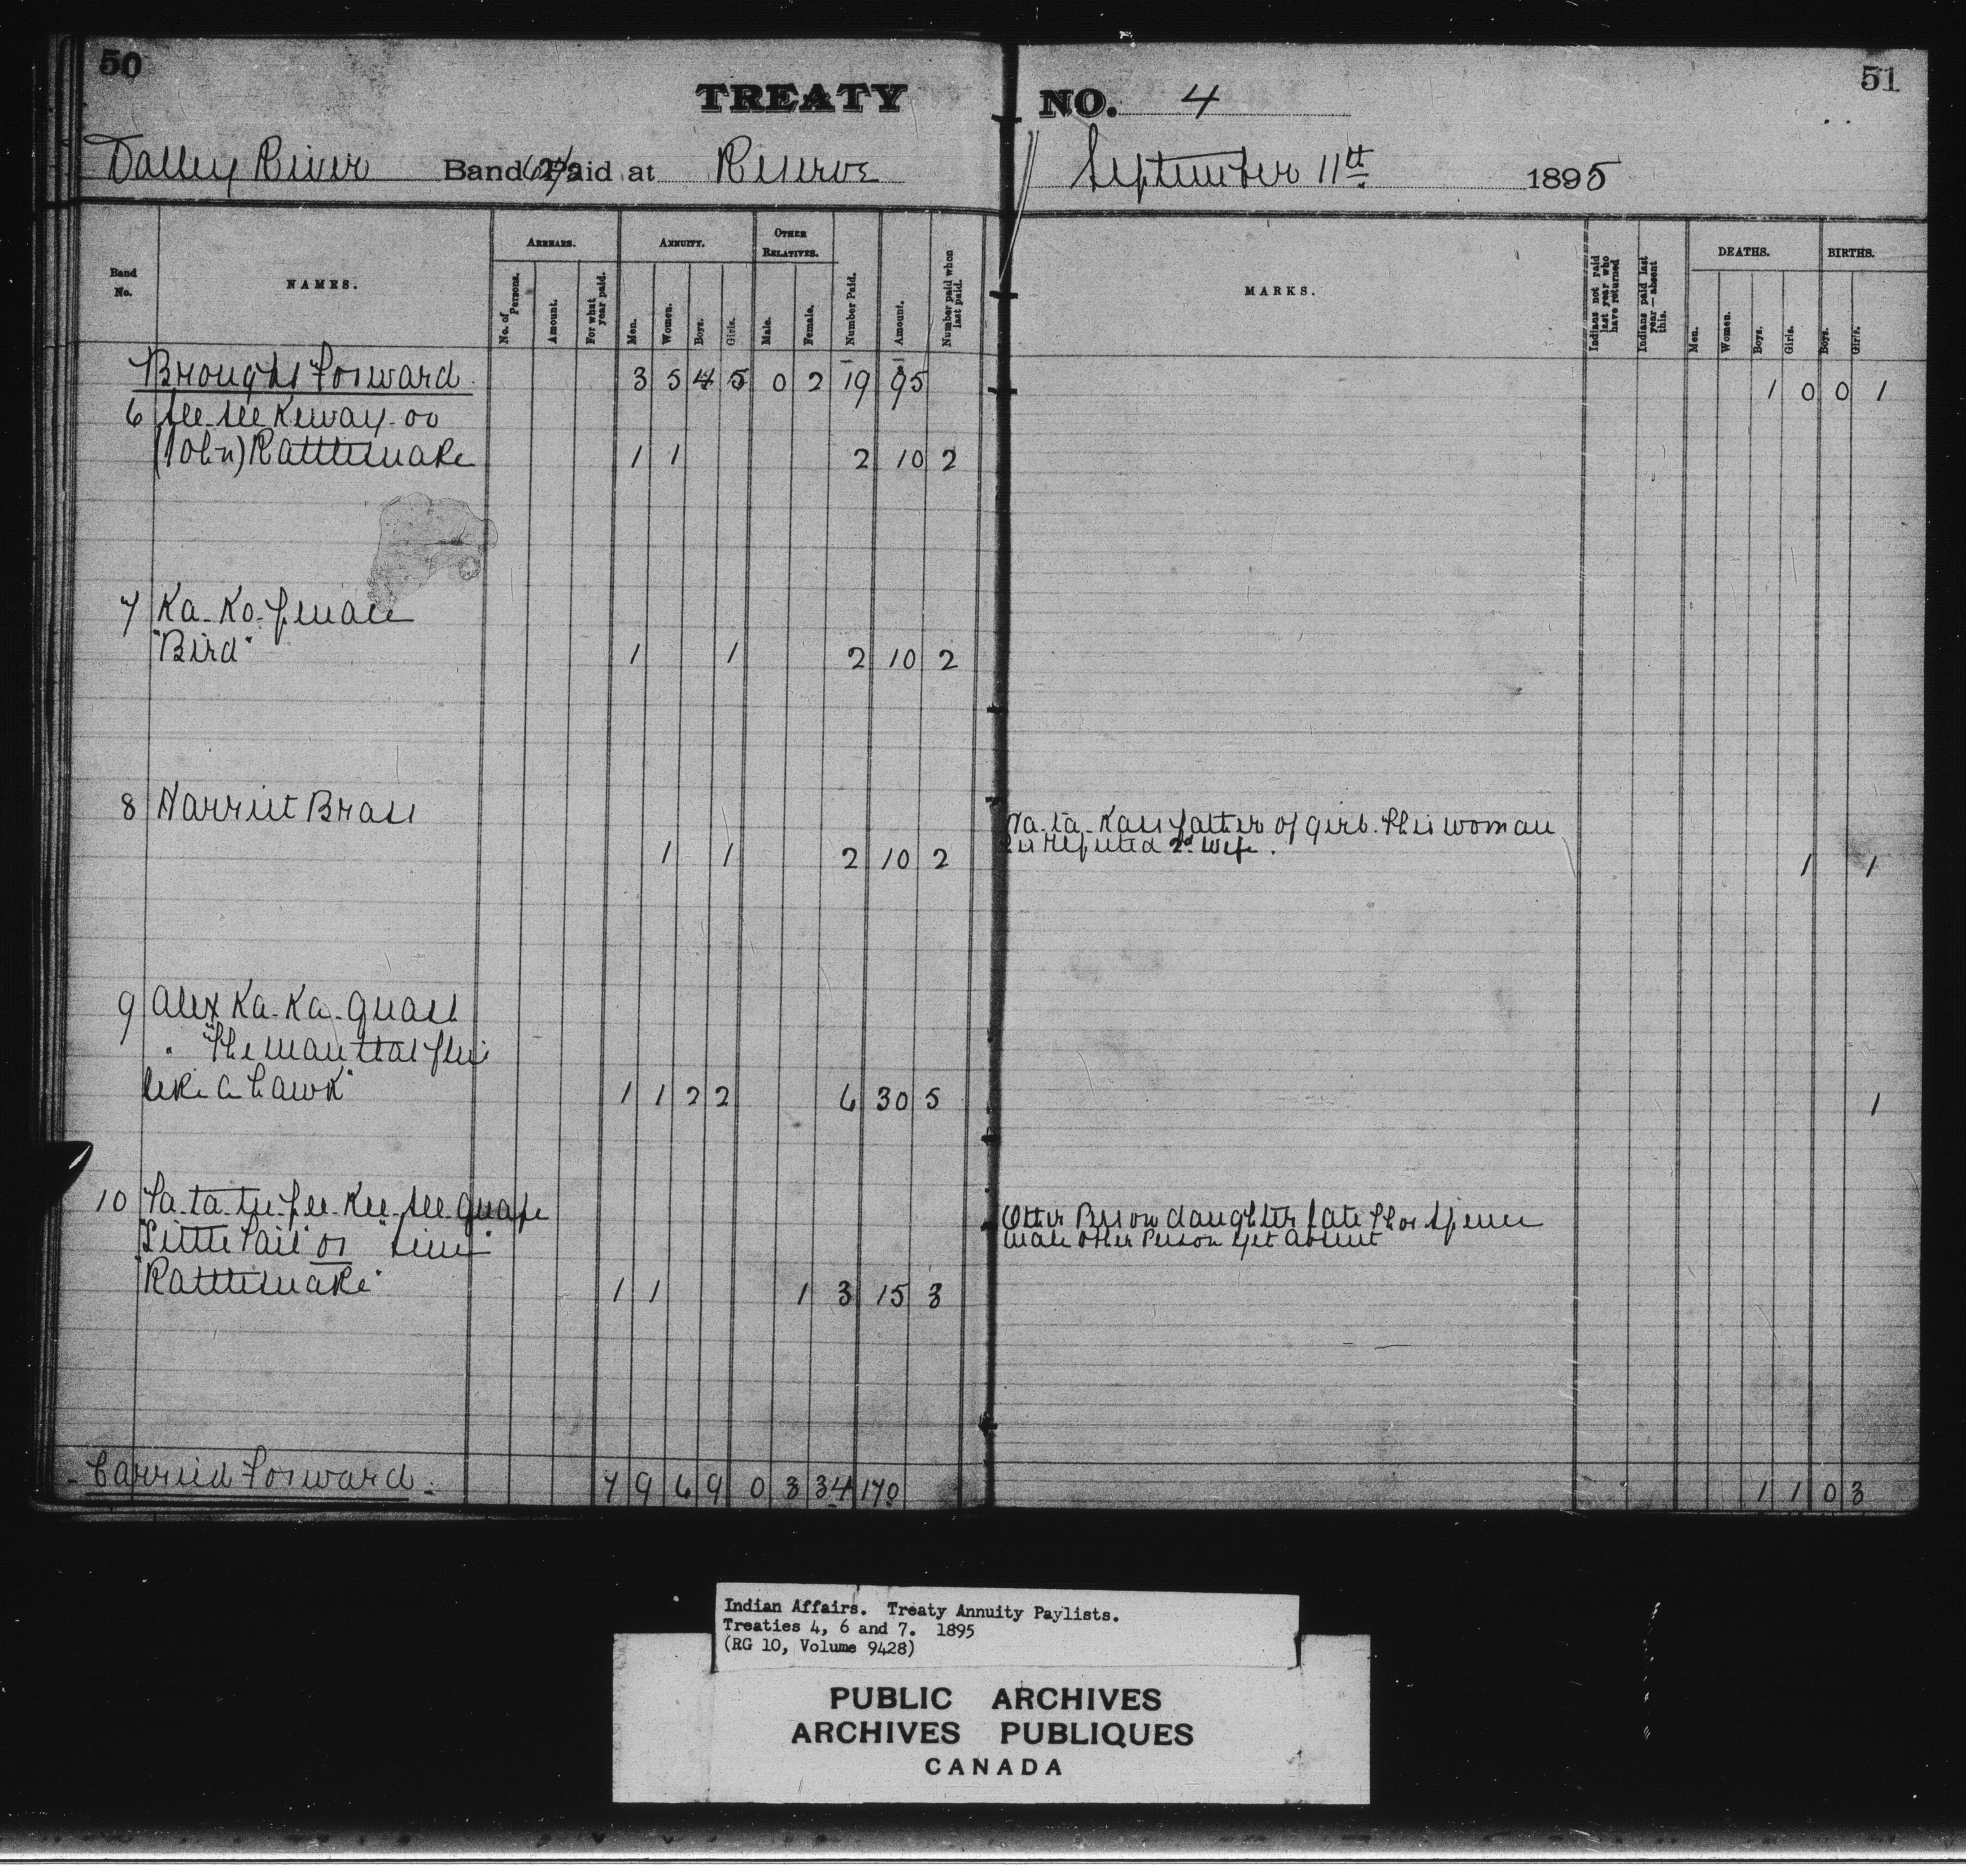 50
51
TREATY NO. 4
Valley River Band Paid at Reserve September 11th 1895
Band No.
NAMES.
ARREARS.
No. of Persons.
Amount.
For what year paid.
ANNUITY.
Men.
Women.
Boys.
Girls.
OTHER RELATIVES.
Male.
Female.
Number Paid.
Amount.
Number paid when last paid.
MARKS.
Indians not paid last year who have returned
Indians paid last year — absent this.
DEATHS.
Men.
Women.
Boys.
Girls.
BIRTHS.
Boys.
Girls.
Brought Forward 3 5 4 5 0 2 19 95 1 0 0 1
6 See-see Keway-oo
(John) Rattlesnake 1 1 2 10 2
7 Ka-Ko-penace
"Bird" 1 1 2 10 2
8 Harriet Brass
father of girls. This woman
is reputed 2nd wife.
1 1 2 10 2 1 1
9 Alex Ka-Ka-quash
" "The man that flies
like a hawk" 1 1 2 2 6 30 5 1
10 Ta-ta-tee-pee-Kee-see-quape
"Little Tail" or
"Rattlesnake" 1 1 1 3 15 3
Other Person daughter late Thos Spence
male other Person yet absent
Carried Forward. 7 9 6 9 0 3 34 170 1 1 0 3
Indian Affairs. Treaty Annuity Paylists.
Treaties 4, 6 and 7. 1895
(RG 10, Volume 9428)
PUBLIC ARCHIVES
ARCHIVES PUBLIQUES
CANADA